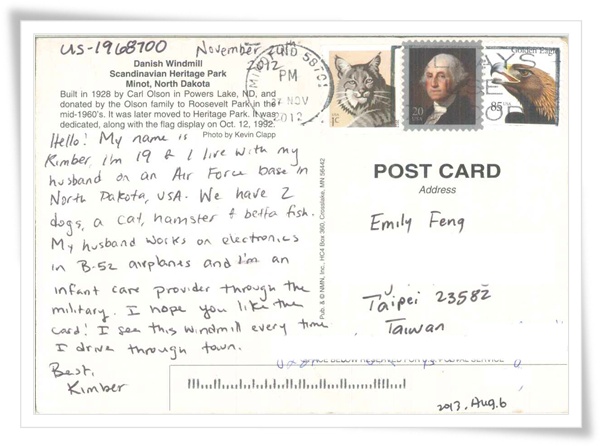 US-1968700
November 20th
2012
Danish Windmill
Scandinavian Heritage Park
Minot, North Dakota
Built in 1928 by Carl Olson in Powers Lake, ND, and
donated by the Olson family to Roosevelt Park in the
mid-1960's. It was later moved to Heritage Park. It was
dedicated, along with the flag display on Oct. 12, 1992.
Photo by Kevin Clapp
Hello! My name is
Kimber, I'm 19 & I live with my
husband on an Air Force base in
North Dakota, USA. We have 2
dogs, a cat, hamster & betta fish.
My husband works on electronics
in B-52 airplanes and I'm an
infant care provider through the
military. I hope you like the
card! I see this windmill every time
I drive through town.
Best,
Kimber
PM
27 NOV
2012
20
USA
Golden Eagle
85
Pub. & © NMN, Inc., HC4 Box 360, Crosslake, MN 56442
POST CARD
Address
Emily Feng
Taipei 23582
Taiwan
2013. Aug. 6